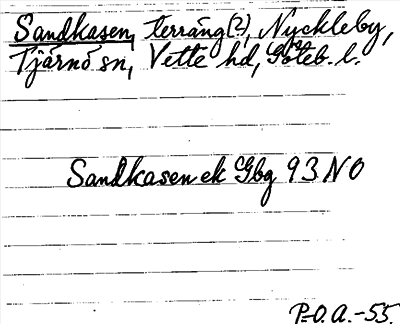 Sandkasen, terräng(?), Nyckleby,
Tjärnö sn, Vette hd, Göteb. l.
Sandkasen ek Gbg 93 NO
P-O.A.-55.